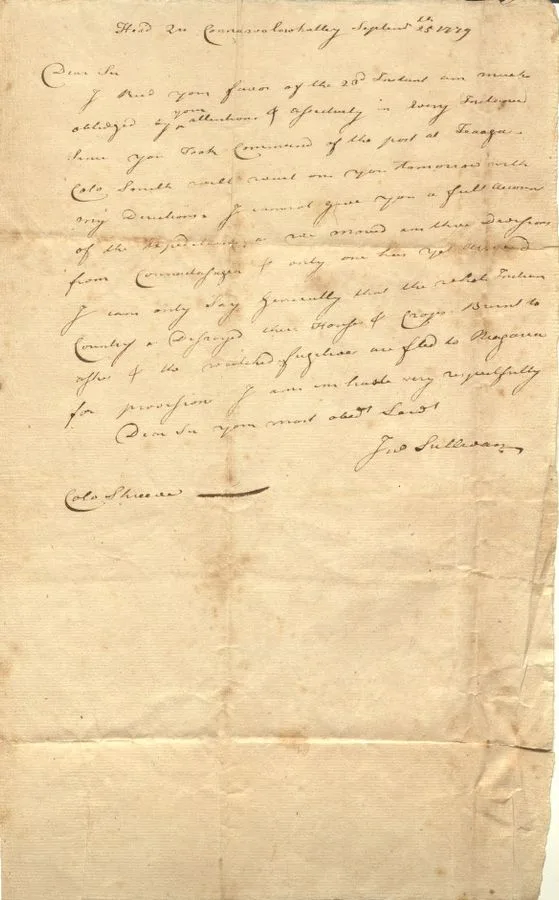 Head Qu Connawalowhalley Septembr 25th 1779
Dear Sir
I Recd your favor of the 23d Instant am much
obliged by your attentions & assiduity in Every Instance
Since you Took Command of the post at Teaoga
Colo Smith will wait on you tomorrow with
my Directions I cannot give you a full Account
of the Expedition as we moved in three Divisions
from & only one has yet Arrived
I can only Say Generally that the whole Indian
Country is Destroyed their Houses & Crops Burnt to
ashes & the wretched fugitives are fled to Niagara
for provision I am in haste very respectfully
Dear Sir your most obedt Servt
Jno Sullivan
Colo Shreeve